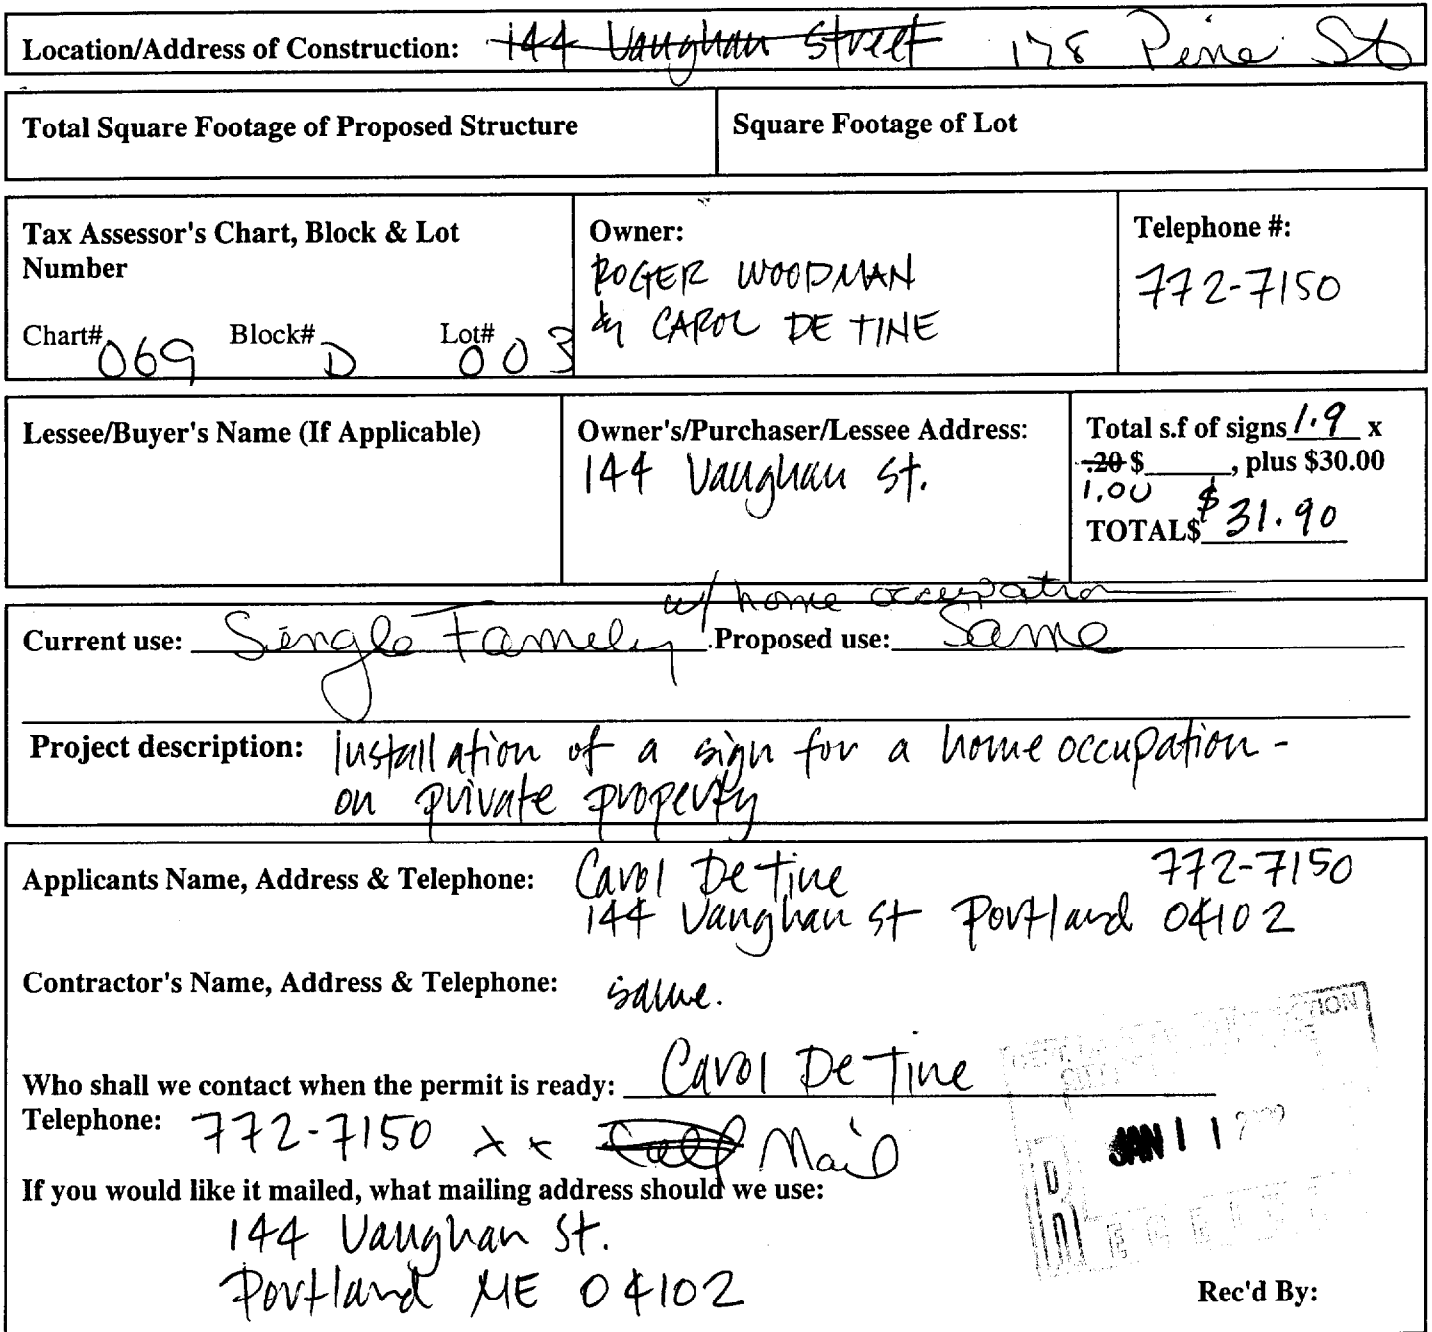 Location/Address of Construction: 144 Vaughan Street 178 Pine St
Total Square Footage of Proposed Structure
Square Footage of Lot
Tax Assessor's Chart, Block & Lot
Number
Chart# 069 Block# D Lot# 003
Owner:
ROGER WOODMAN
& CAROL DE TINE
Telephone #:
772-7150
Lessee/Buyer's Name (If Applicable)
Owner's/Purchaser/Lessee Address:
144 Vaughan St.
Total s.f of signs 1.9 x
.20 $______, plus $30.00
1.00
TOTAL$ $31.90
w/ home occupation
Current use: Single Family Proposed use: Same
Project description: Installation of a sign for a home occupation -
on private property
Applicants Name, Address & Telephone: Carol De Tine 772-7150
144 Vaughan St Portland 04102
Contractor's Name, Address & Telephone: same.
Who shall we contact when the permit is ready: Carol De Tine
Telephone: 772-7150 x x Call Mail
If you would like it mailed, what mailing address should we use:
144 Vaughan St.
Portland ME 04102
JAN 11
Rec'd By: